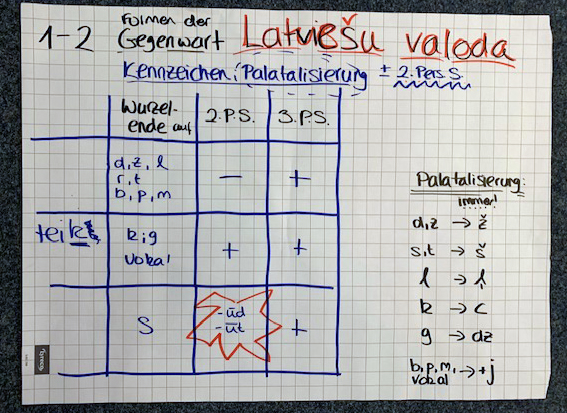 1-2 Formen der
Gegenwart Latviešu valoda
Kennzeichen: Palatalisierung ± 2. Pers. S
Wurzel-
ende auf 2.P.S. 3.P.S.
d, z, l
r, t
b, p, m − +
teikt k, g
Vokal + +
s -ūd
-ūt +
Palatalisierung:
immer!
d, z → ž
s, t → š
l → ļ
k → c
g → dz
b, p, m,
vokal → +j